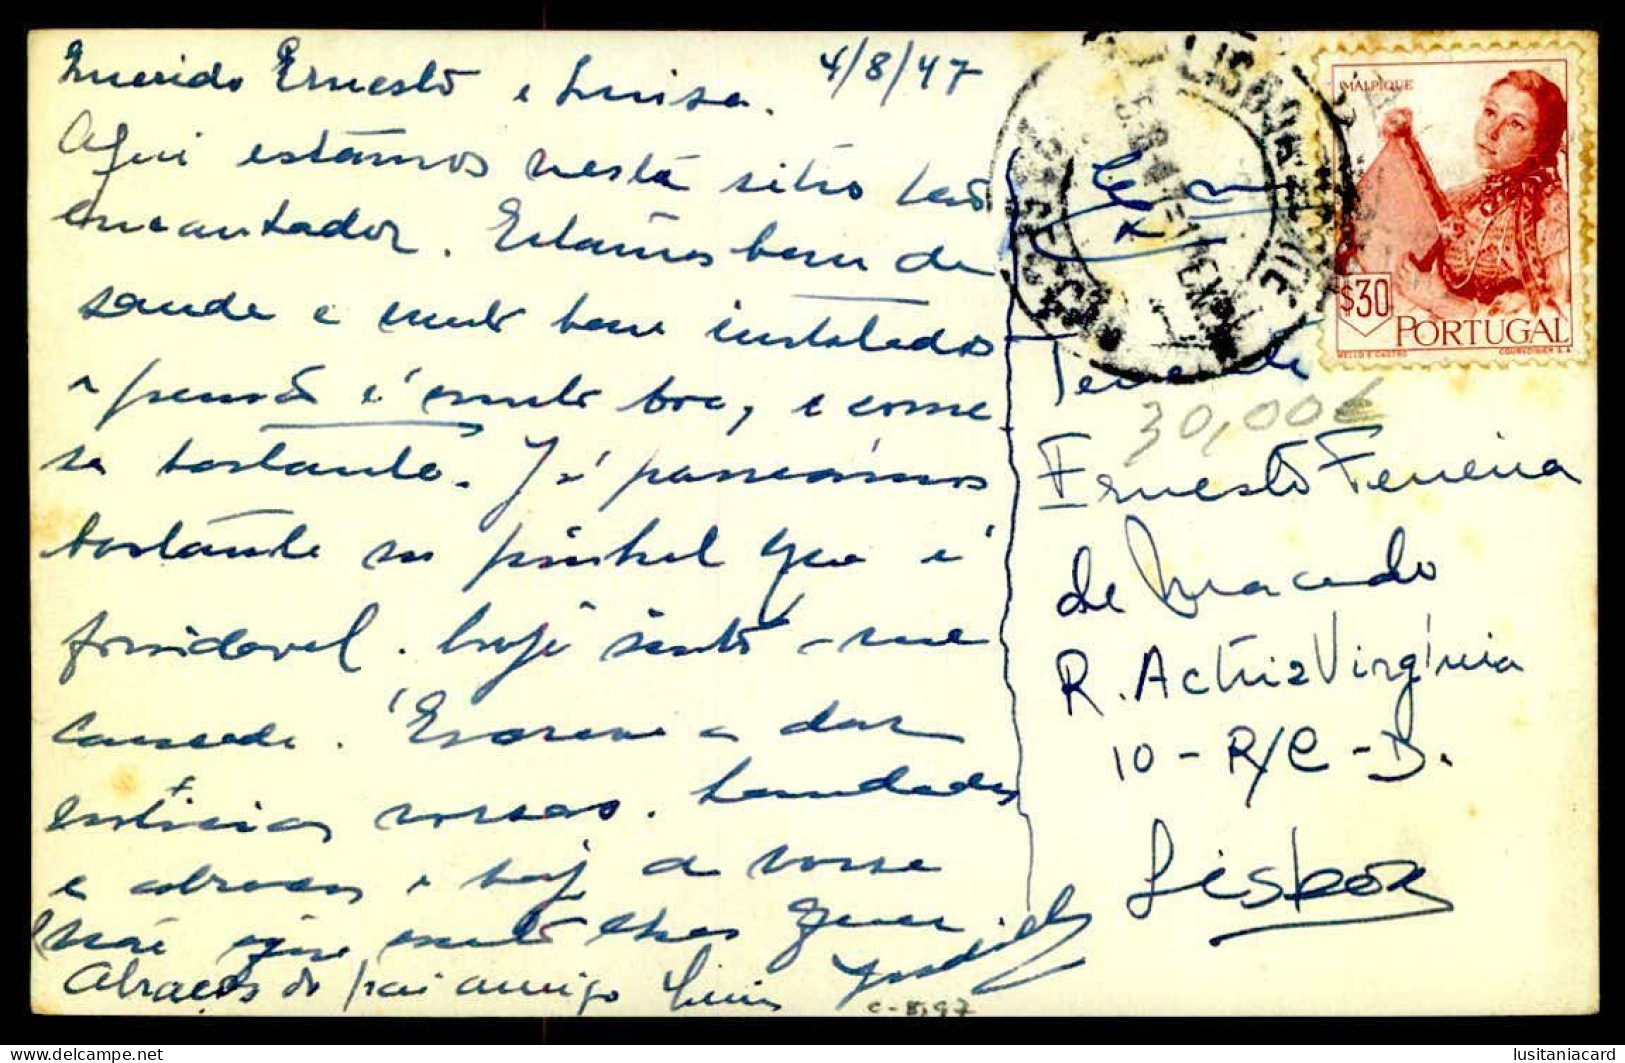 4/8/47
Querido Ernesto e Luisa.
Aqui estamos nesta sitio tão
encantador. Estamos bem de
saude e muito bem instalados
a pensão é muito boa, e come
se bastante. Já passeámos
bastante no pinhal que é
formidavel. hoje sinto-me
cansada. Escreve a dar
noticias vossas. Saudades
e abraços e da vossa
Mãe que muito lhes quer
Abraços do pai amigo Luis
Tenente
Ernesto Ferreira
de Macedo
R. Actriz Virgínia
10-R/C-D.
Lisboa
30,00€
c-8,97
LISBOA
MALPIQUE
$30
PORTUGAL
MELLO E CASTRO
COURVOISIER S.A
lusitaniacard
delcampe.net